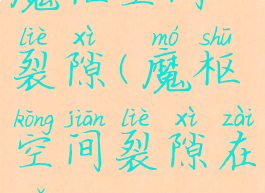 liè xì mó shū
裂隙(魔枢
kōng jiān liè xì zài
空间裂隙在